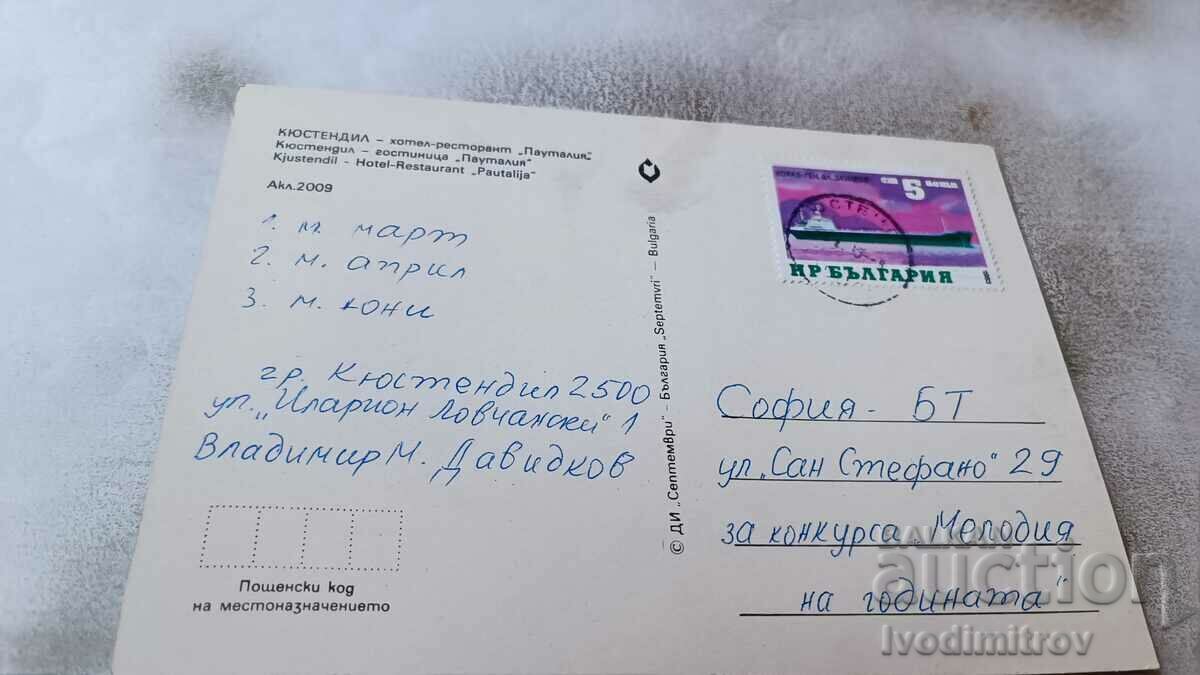 КЮСТЕНДИЛ – хотел-ресторант „Пауталия“
Кюстендил – гостиница „Пауталия“
Kjustendil - Hotel-Restaurant „Pautalija“
Акл.2009
1. м. март
2. м. април
3. м. юни
гр. Кюстендил 2500
ул. „Иларион Ловчански“ 1
Владимир М. Давидков
Пощенски код
на местоназначението
© ДИ „Септември“ – България „Septemvri“ – Bulgaria
ст 5 поща
НР БЪЛГАРИЯ
София - БТ
ул. „Сан Стефано“ 29
за конкурса „Мелодия
на годината“
BALKAN
auction
Ivodimitrov